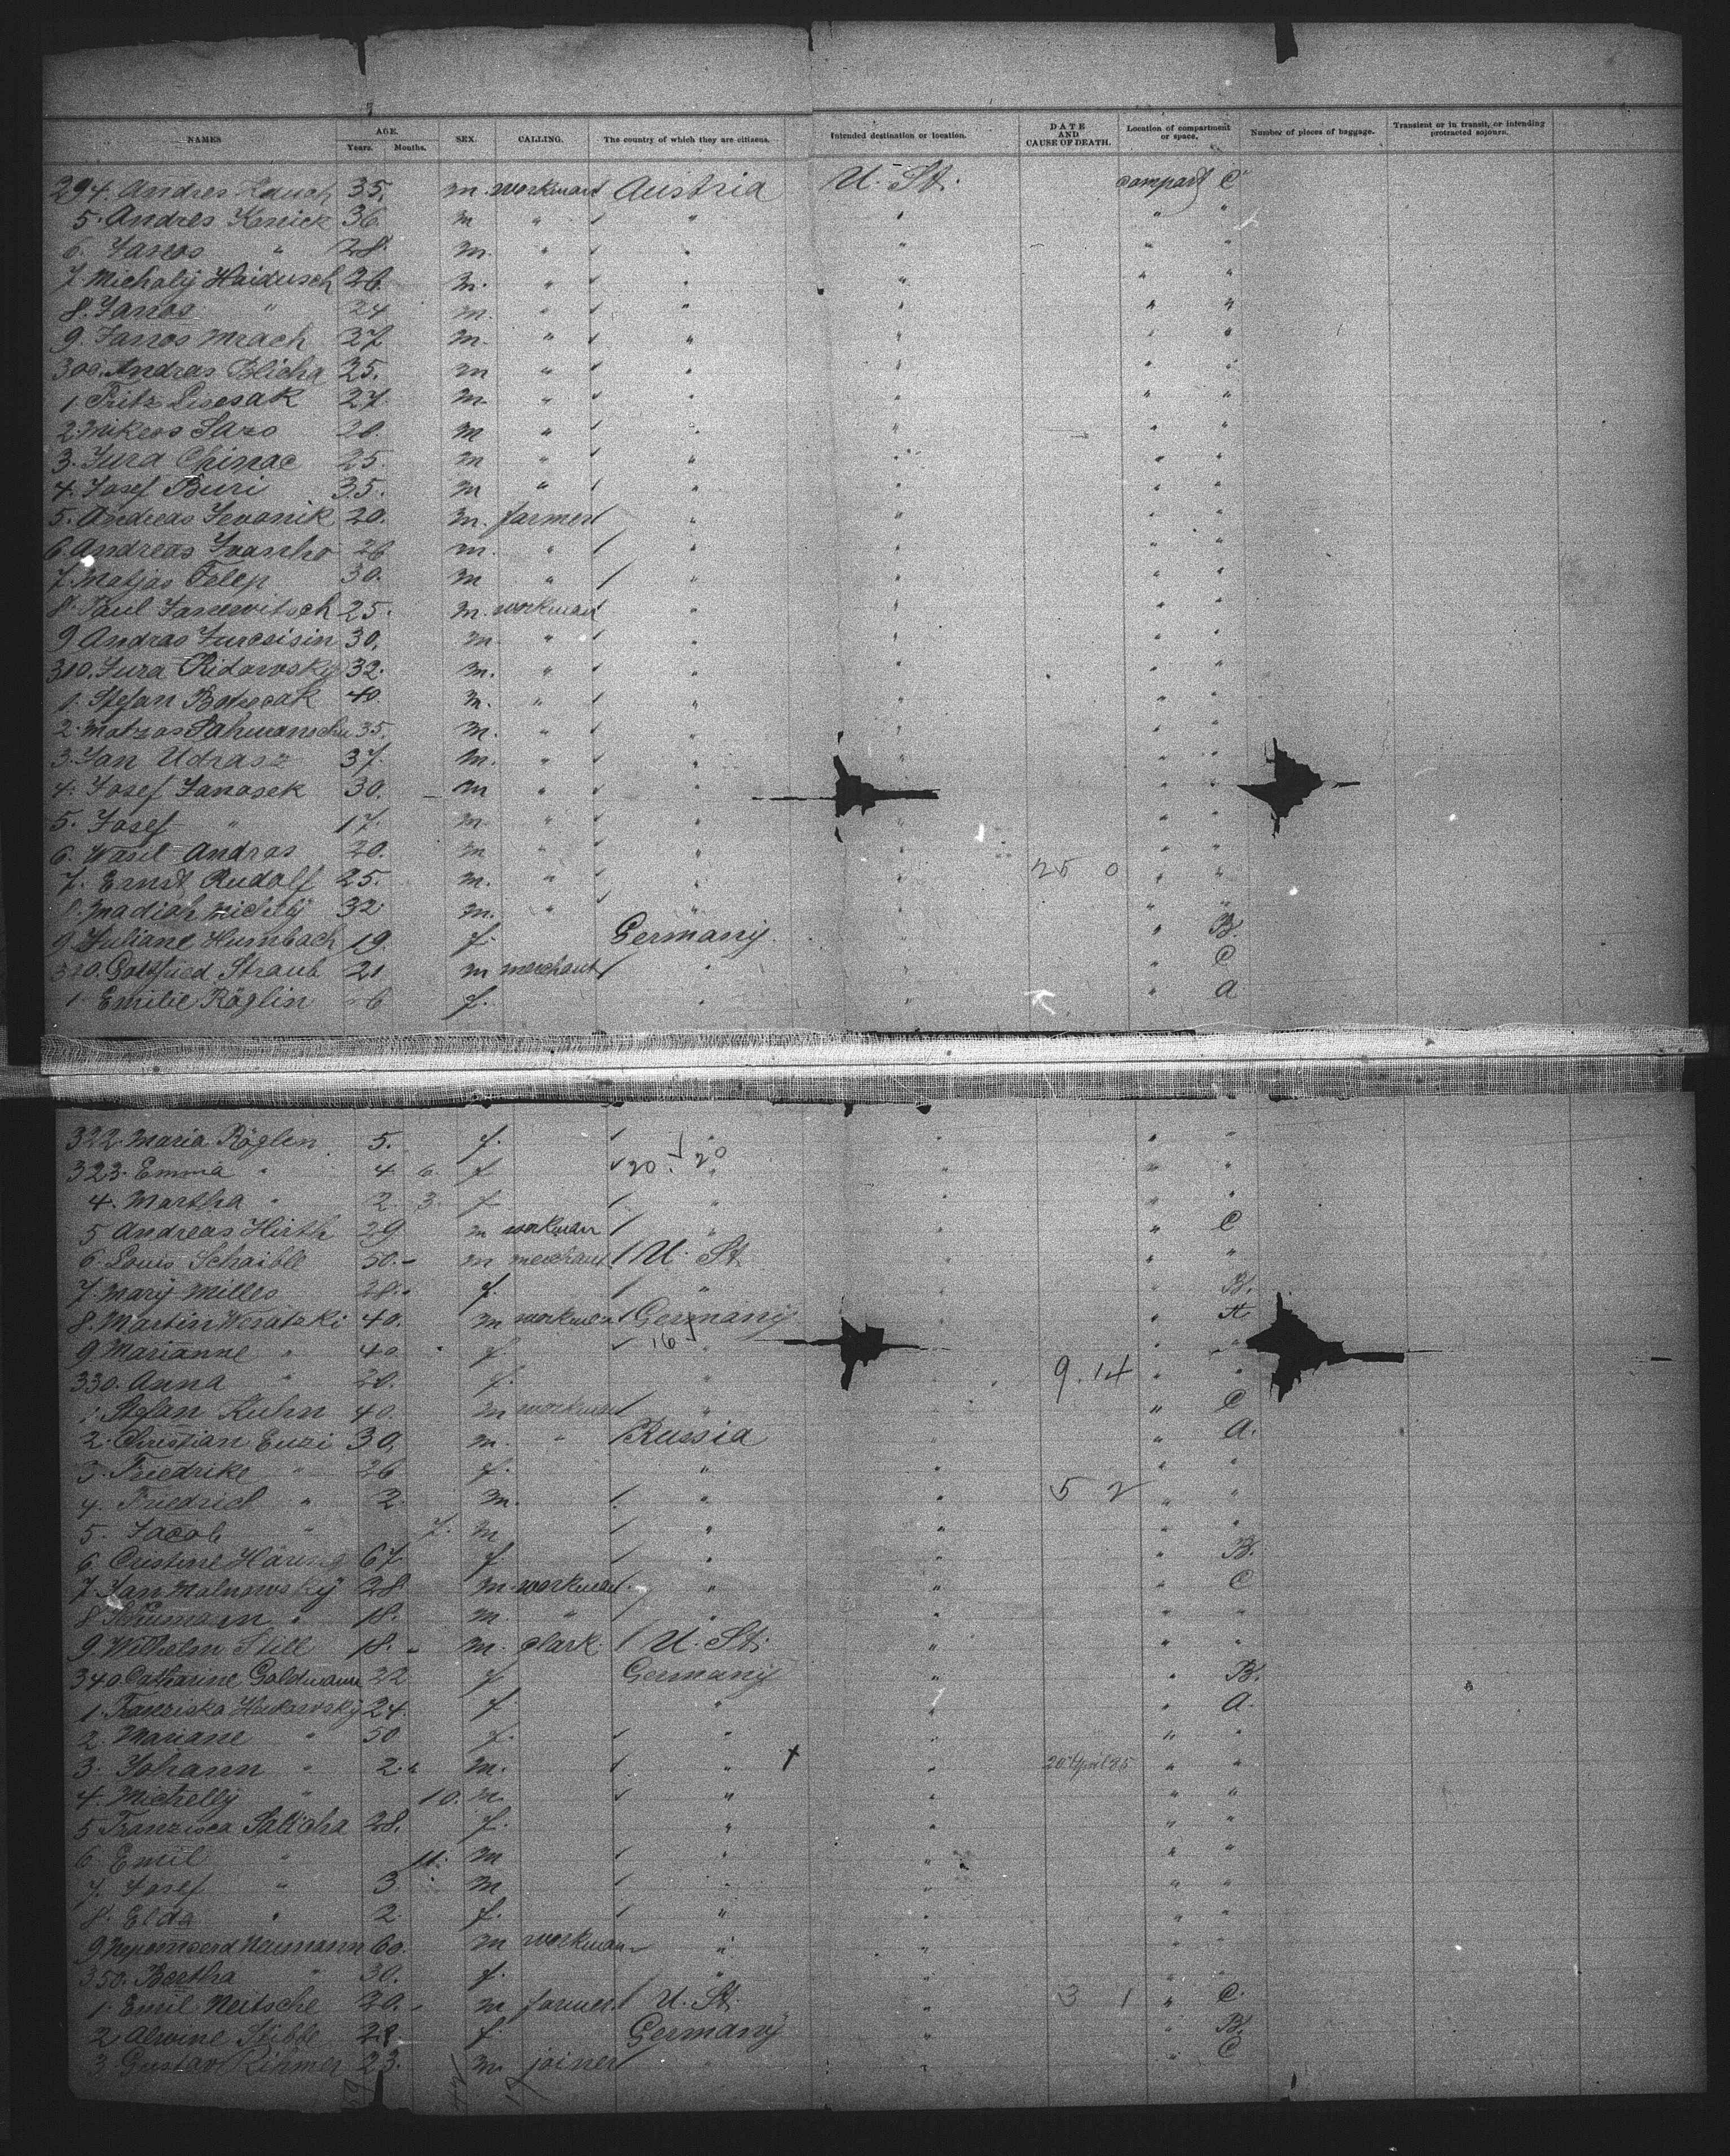 NAMES AGE. Years. Months. SEX. CALLING. The country of which they are citizens. Intended destination or location. DATE AND CAUSE OF DEATH. Location of compartment or space. Number of pieces of baggage. Transient or in transit, or intending protracted sojourn.
294. Andres 35. m. workman Austria U. St. compart C
5. Andres 36 m " " " " "
6. Janos " 28. m. " " " " "
7. Michaly Haidusch 26 m. " " " " "
8. Janos " 24 m. " " " " "
9. Janos Mrach 27 m. " " " " "
300. Andras Blicha 25. m " " " " "
1. Fritz 27 m. " " " " "
2. Mikeos Saro 20. m " " " " "
3. Jura Chinac 25. m " " " " "
4. Josef Buri 35. m " " " " "
5. Andreas Jevonik 20. m. farmer " " " "
6. Andreas Ivanho 26 m. " " " " "
7. Matjas Felep 30. m " " " " "
8. Paul Janewitsch 25. m. workman " " " "
9. Andras 30. m. " " " " "
310. Jura Ridarosky 32. m. " " " " "
1. Stefan 40. m. " " " " "
2. Matzas 35. m. " " " " "
3. Jan Udrasz 37. m. " " " " "
4. Josef Janosek 30. m " " " " "
5. Josef " 17. m " " " " "
6. Wasil Andras 20. m " " " " "
7. Ernst Rudolf 25. m. " " " 25 0 " "
8. 32 m. " " " " "
9. Juliane Humbach 19. f. Germany " " B.
320. Gottfried Straub 21 m merchant " " " C
1. Emilie Röglin 6 f. " " " a
322. Maria Röglen 5. f. " " " "
323. Emma " 4 6 f 20. 20 " " " "
4. Martha " 2. 3. f " " " "
5 Andreas Hirth 29 m workman " " " C
6. Louis Schaible 50. m merchant U. St. " "
7. Mary Milles 28. f. " " B.
8. Martin Weratzki 40. m workman Germany " A.
9. Marianne " 40. f. 16 " " "
330. Anna " 20. f. " " 9. 14 " "
1. Stefan Kuhn 40. m workman " " " C
2. Christian Enzi 30. m. " Russia " " A.
3. Friedrike " 26 f. " " " "
4. Friedrich " 2. m. " " 5 2 " "
5. Jacob " 7. m " " " "
6. Cristine Häring 67 f. " " " B.
7. Jan Malnowsky 28 m. workman " " " C
8. " 18. m. " " " " "
9. Wilhelm Still 18. m. clark. U. St. " " "
340. Catharine Goldmann 22 f Germany " " B.
1. Franziska 24. f " " " A.
2. Mariane " 50 f. " " " "
3. Johann " 2. m. " " 20 April 85 " "
4. Michelly " 10. m. " " " "
5. Franzisca 28. f. " " " "
6. Emil " 11. m " " " "
7. Josef " 3 m " " " "
8. Elda " 2. f. " " " "
9. Neumann 60. m workman " " " "
350. Bertha " 30. f. " " " "
1. Emil Neitsche 20. m farmer U. St. " 3 1 " C.
2. Alwine Stibbe 28. f. Germany " " B.
3. Gustav 23. m. joiner " " " C